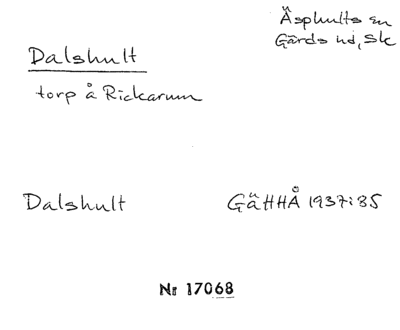 Äsphults sn
Gärds hd, Sk
Dalshult
torp å Rickarum
Dalshult GäHHÅ 1937:85
Nr 17068